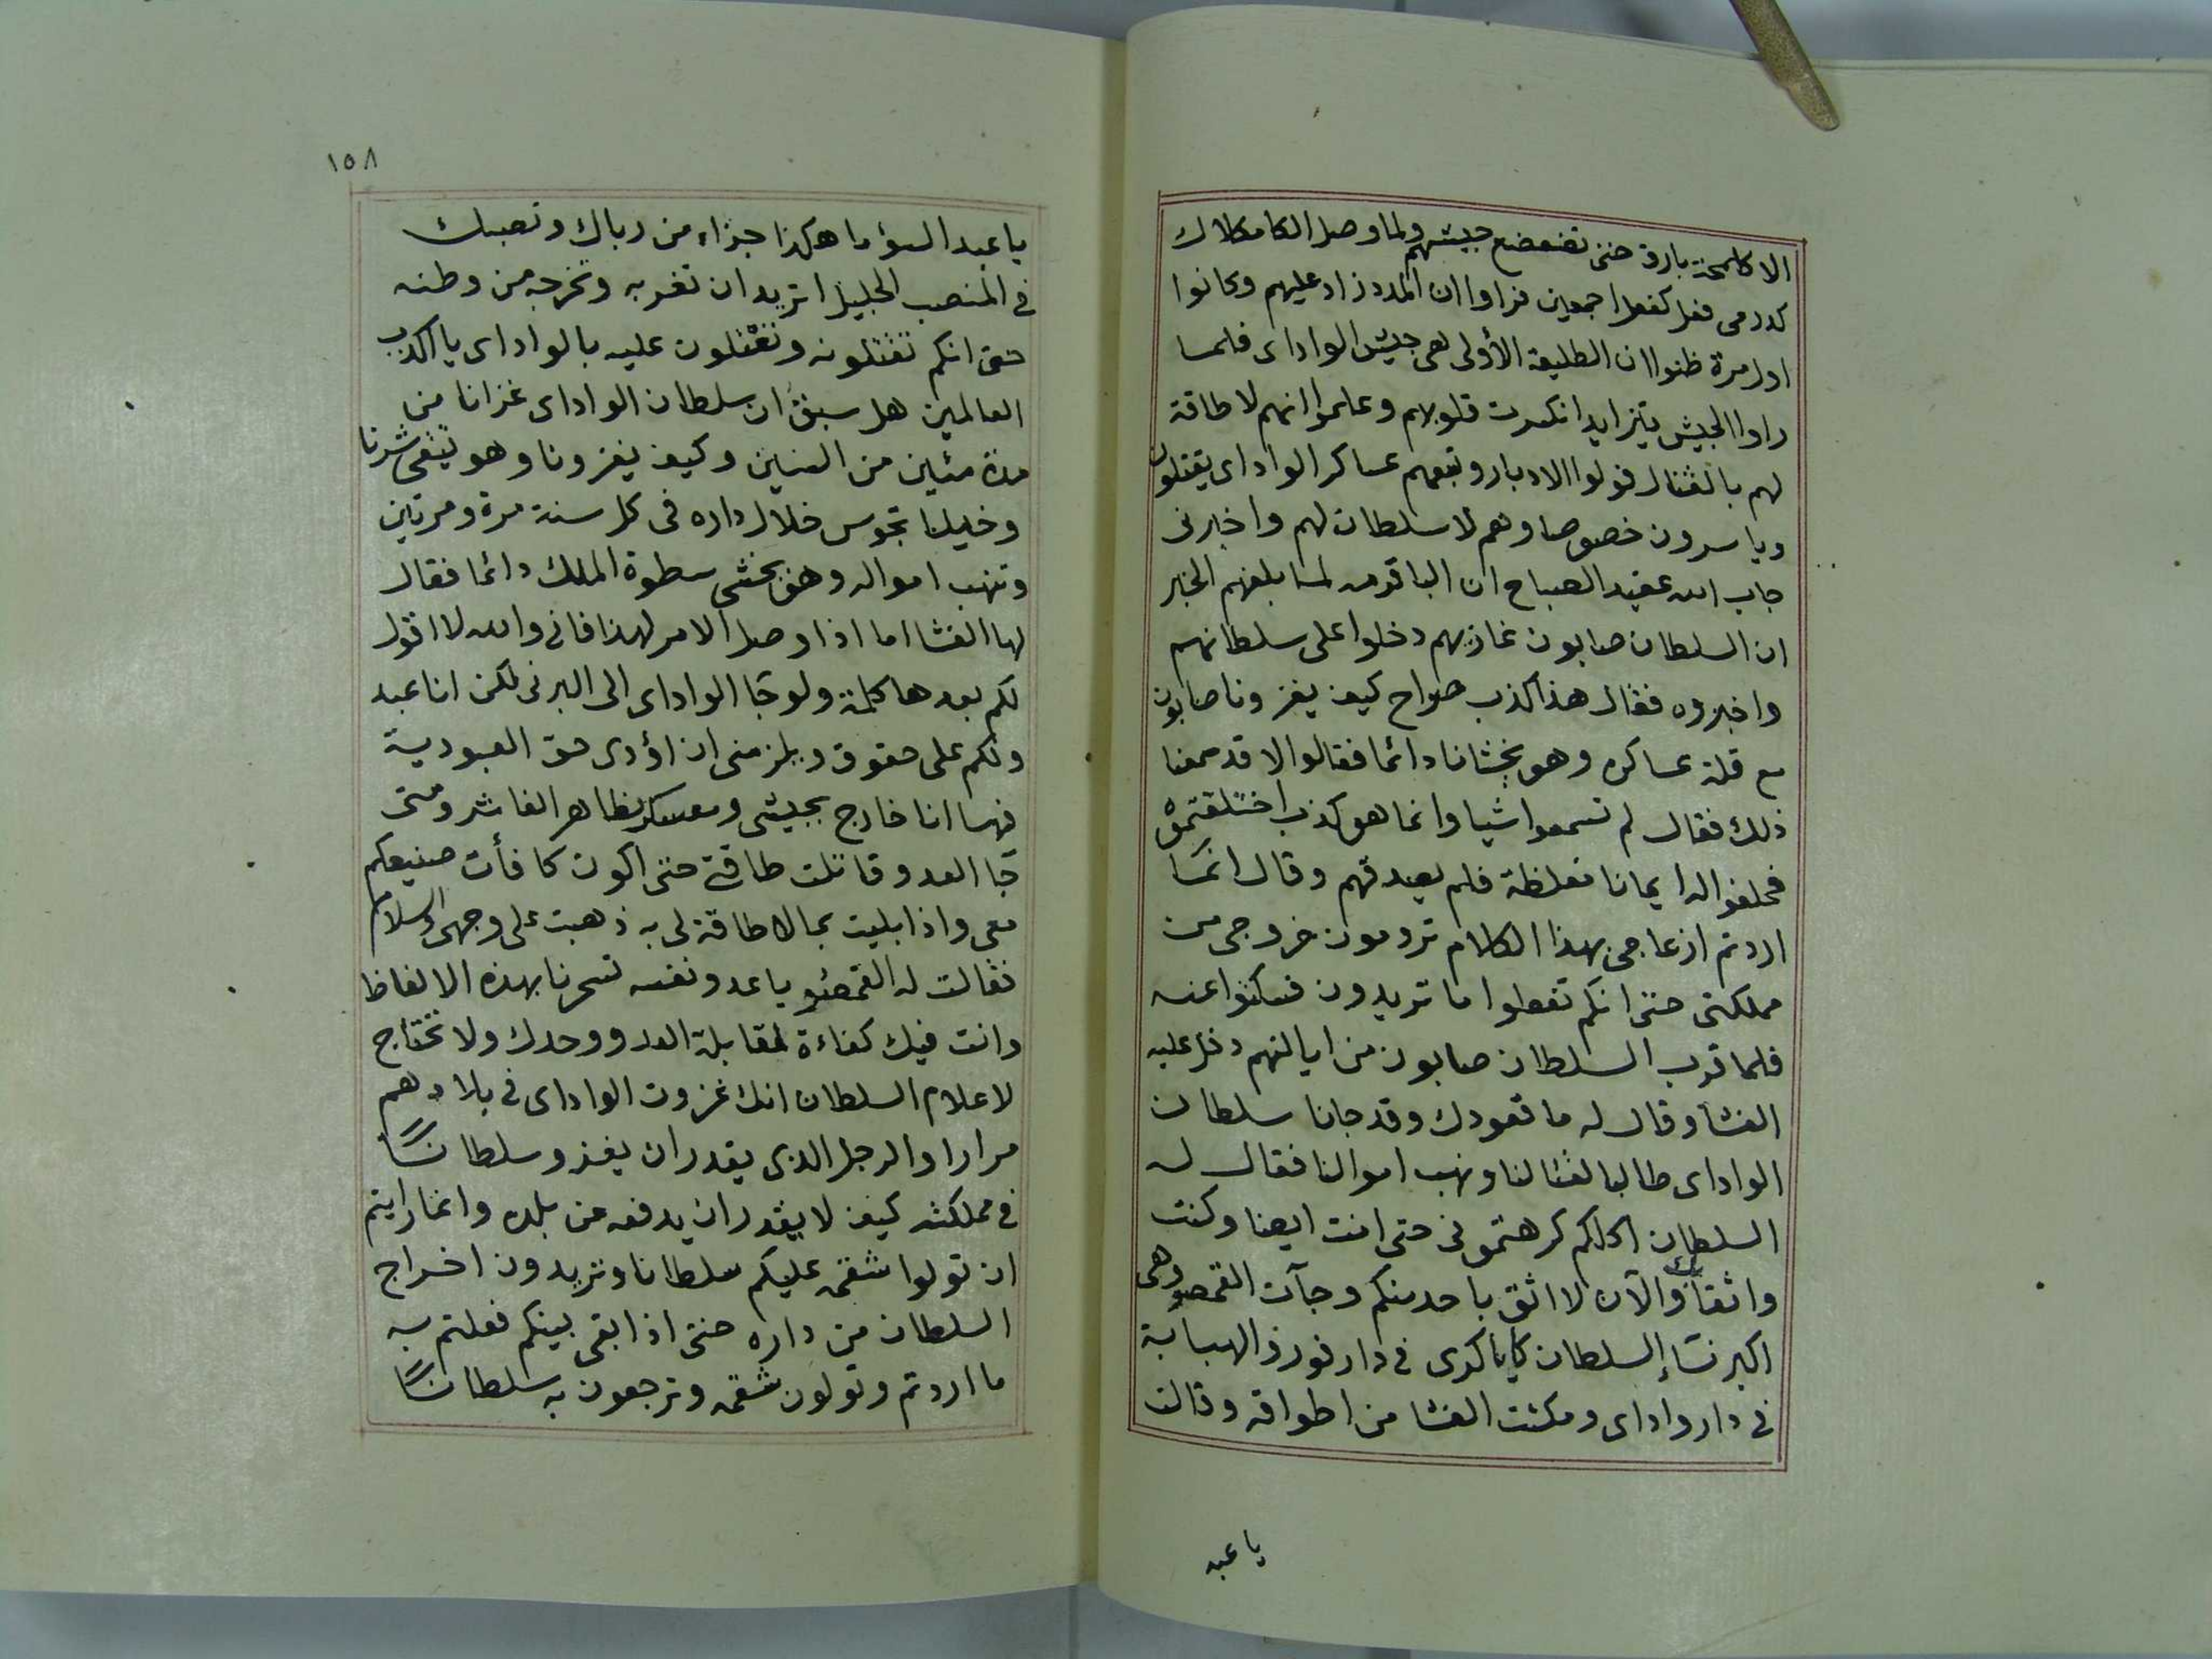 الا كلمحة بارق حتى تضعضع جيشهم ولما وصل الكامكلاك
كدرمى فعل كفعل اجمعين فراوا ان المدد زاد عليهم وكانوا
اول مرة ظنوا ان الطليعة الأولى هى جيش الواداى فلما
راوا الجيش يتزايد انكسرت قلوبهم وعلموا انهم لا طاقة
لهم بالقتال فولوا الادبار وتبعهم عساكر الواداى يقتلون
وياسرون خصوصا وهم لا سلطان لهم واخبرنى
جاب الله عقيد الصباح ان الباقرمه لما بلغهم الخبر
ان السلطان صابون غازيهم دخلوا على سلطانهم
واخبروه فقال هذا كذب صراح كيف يغزونا صابون
مع قلة عساكره وهو يخشانا دائما فقالوا لا قد سمعنا
ذلك فقال لم تسمعوا شيا وانما هو كذب اختلقتموه
فحلفوا له ايمانا مغلظة فلم يصدقهم وقال انما
اردتم ازعاجى بهذا الكلام ترومون خروجى من
مملكتى حتى انكم تفعلوا ما تريدون فسكتوا عنه
فلما قرب السلطان صابون من ايالتهم دخل عليه
الفشا وقال له ما قعودك وقد جانا سلطان
الواداى طالبا لقتالنا ونهب اموالنا فقال له
السلطان اكلكم كرهتمونى حتى انت ايضا وكنت
واثقا بك والآن لا اثق باحد منكم وجآت القمصو وهى
اكبر نسآء السلطان كاياكرى فى دارفور والهبابة
فى دار واداى ومكثت الفشا من اطواقه وقالت
يا عبد
١٥٨
يا عبد السؤ اما هكذا جزاء من رباك ونصبك
فى المنصب الجليل اتريد ان تغربه وتخرجه من وطنه
حتى انكم تقتلونه وتعتلون عليه بالواداى يا اكذب
العالمين هل سبق ان سلطان الواداى غزانا من
مدة مئين من السنين وكيف يغزونا وهو يتقى شرنا
وخيلنا تجوس خلال داره فى كل سنة مرة ومرتين
وتنهب امواله وهو يخشى سطوة الملك دائما فقال
لها الفشا اما اذا وصل الامر لهذا فانى والله لا اقول
لكم بعدها كلمة ولو جا الواداى الى البرنى لكن انا عبد
ولكم على حقوق ويلزمنى ان اؤدى حق العبودية
فها انا خارج بجيشى ومعسكر بظاهر الفاشر ومتى
جا العدو قاتلت طاقتى حتى اكون كافأت صنيعكم
معى واذا بليت بما لا طاقة لى به ذهبت على وجهى والسلام
فقالت له القمصو يا عدو نفسه تسحرنا بهذه الالفاظ
وانت فيك كفاءة لمقابلة العدو وحدك ولا تحتاج
لاعلام السلطان انك غزوت الواداى فى بلادهم
مرارا والرجل الذى يقدر ان يغزو سلطانًا
فى مملكته كيف لا يقدر ان يدفعه من بلده وانما رايتم
ان تولوا شقمه عليكم سلطانا وتريدون اخراج
السلطان من داره حتى اذا بقى بينكم فعلتم به
ما اردتم وتولون شقمه وترجعون به سلطانًا